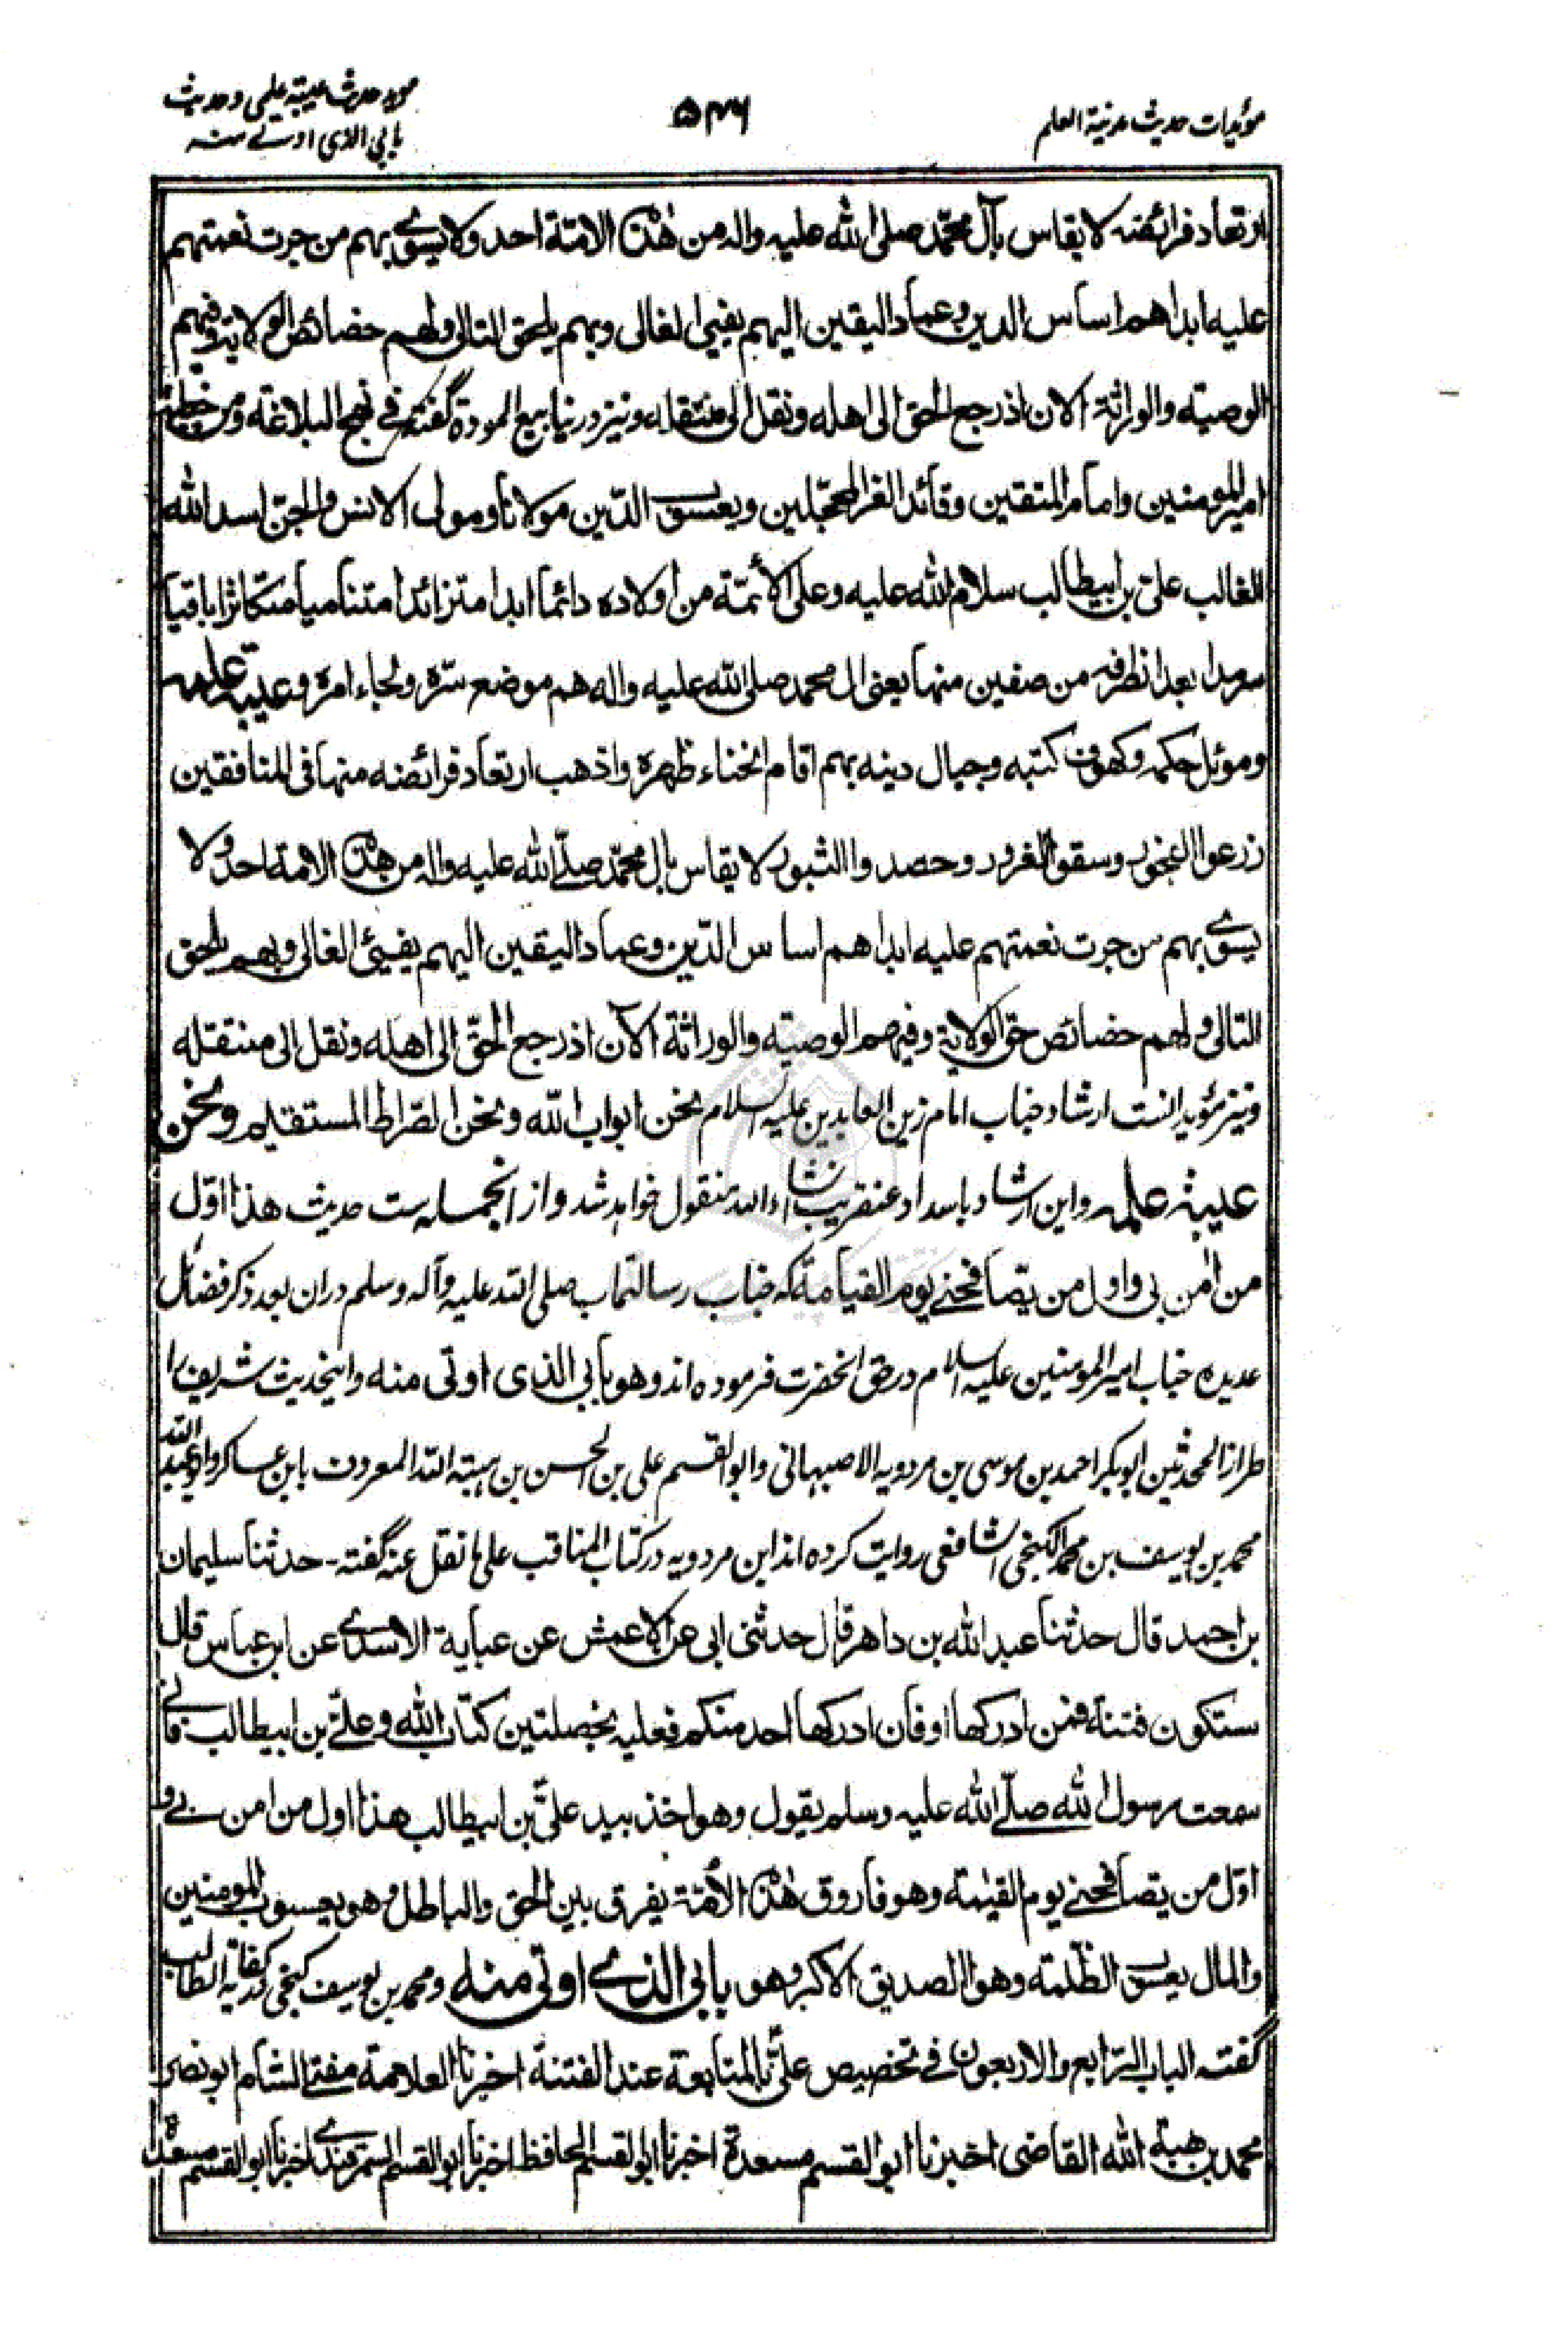 مؤیدات حدیث مدینة العلم
۵۴۶
موید حدیث عیبة علمی و حدیث
بابی الذی اوتے منہ
ارتعاد فرائضه لا یقاس بآل محمّد صلی الله علیه واله من هذه الامّة احد ولا یسوّی بهم من جرت نعمتهم
علیه ابدا هم اساس الدین وعماد الیقین الیهم یفیئ الغالی وبهم یلحق التالی ولهم خصائص الولایة وفیهم
الوصیة والوراثة الان اذ رجع الحق الی اهله ونقل الی منتقله ونیز در ینابیع المودة گفته فی نهج البلاغة ومن خطبة
امیر المومنین وامام المتقین وقائد الغر المحجّلین ویعسوب الدّین مولانا ومولی الانس والجنّ اسد الله
الغالب علیّ بن ابیطالب سلام الله علیه وعلی الأئمّة من اولاده دائما ابدا متزائدا متنامیا متکاثرا باقیا
سرمدا بعد انصرافه من صفین منها یعنی ال محمد صلی الله علیه واله هم موضع سرّه ولجاء امره وعیبة علمه
وموئل حکمه وکهوف کتبه وجبال دینه بهم اقام انحناء ظهره واذهب ارتعاد فرائضه منها فی المنافقین
زرعوا الفجور وسقوه الغرور وحصدوا الثبور لا یقاس بال محمّد صلّے الله علیه واله من هذه الامة احد ولا
یسوّی بهم من جرت نعمتهم علیه ابدا هم اساس الدّین وعماد الیقین الیهم یفیئ الغالی وبهم یلحق
التالی ولهم خصائص حق الولایة وفیهم الوصیة والوراثة الآن اذ رجع الحقّ الی اهله ونقل الی منتقله
ونیز مؤید انست ارشاد جناب امام زین العابدین علیه السلام نحن ابواب الله ونحن الصّراط المستقیم ونحن
عیبة علمه واین ارشاد باسداد عنقریب انشاءالله منقول خواهد شد واز انجمله ست حدیث هذا اوّل
من اٰمن بی واول من یصافحنے یوم القیامة که جناب رسالتماب صلی الله علیه وآله وسلم دران بعد ذکر فضائل
عدیده جناب امیر المومنین علیه السلام در حق انحضرت فرموده اند وهو بابی الذی اوتی منه واینحدیث شریف را
طراز المحدثین ابوبکر احمد بن موسی بن مردویه الاصبهانی وابو القسم علی بن الحسن بن هبة الله المعروف بابن عساکر وابو عبد الله
محمد بن یوسف بن محمد الکنجی الشافعی روایت کرده اند ابن مردویه در کتاب المناقب علی ما نقل عنه گفته - حدثنا سلیمان
بن احمد قال حدثنا عبد الله بن داهر قال حدثنی ابی عن الاعمش عن عبایة الاسدی عن ابن عباس قال
ستکون فتنة فمن ادرکها اوفان ادرکها احد منکم فعلیه بخصلتین کتاب الله وعلیّ بن ابیطالب فانی
سمعت رسول الله صلّے الله علیه وسلم یقول وهو اخذ بید علیّ بن ابیطالب هذا اول من امن بے و
اوّل من یصافحنے یوم القیٰمة وهو فاروق هذه الأمّة یفرق بین الحق والباطل وهو یعسوب المومنین
والمال یعسوب الظّلمة وهو الصدیق الاکبر وهو بابی الذے اوتی منه ومحمد بن یوسف کنجی در کفایة الطالب
گفته الباب الرّابع والاربعون فے تخصیص علیّ بالمتابعة عند الفتنة اخبرنا العلامة مفتے الشام ابو نصر
محمد بن هبة الله القاضی اخبرنا ابو القسم مسعدة اخبرنا ابو القسم الحافظ اخبرنا ابو القسم السمرقندی اخبرنا ابو القسم مسعدة